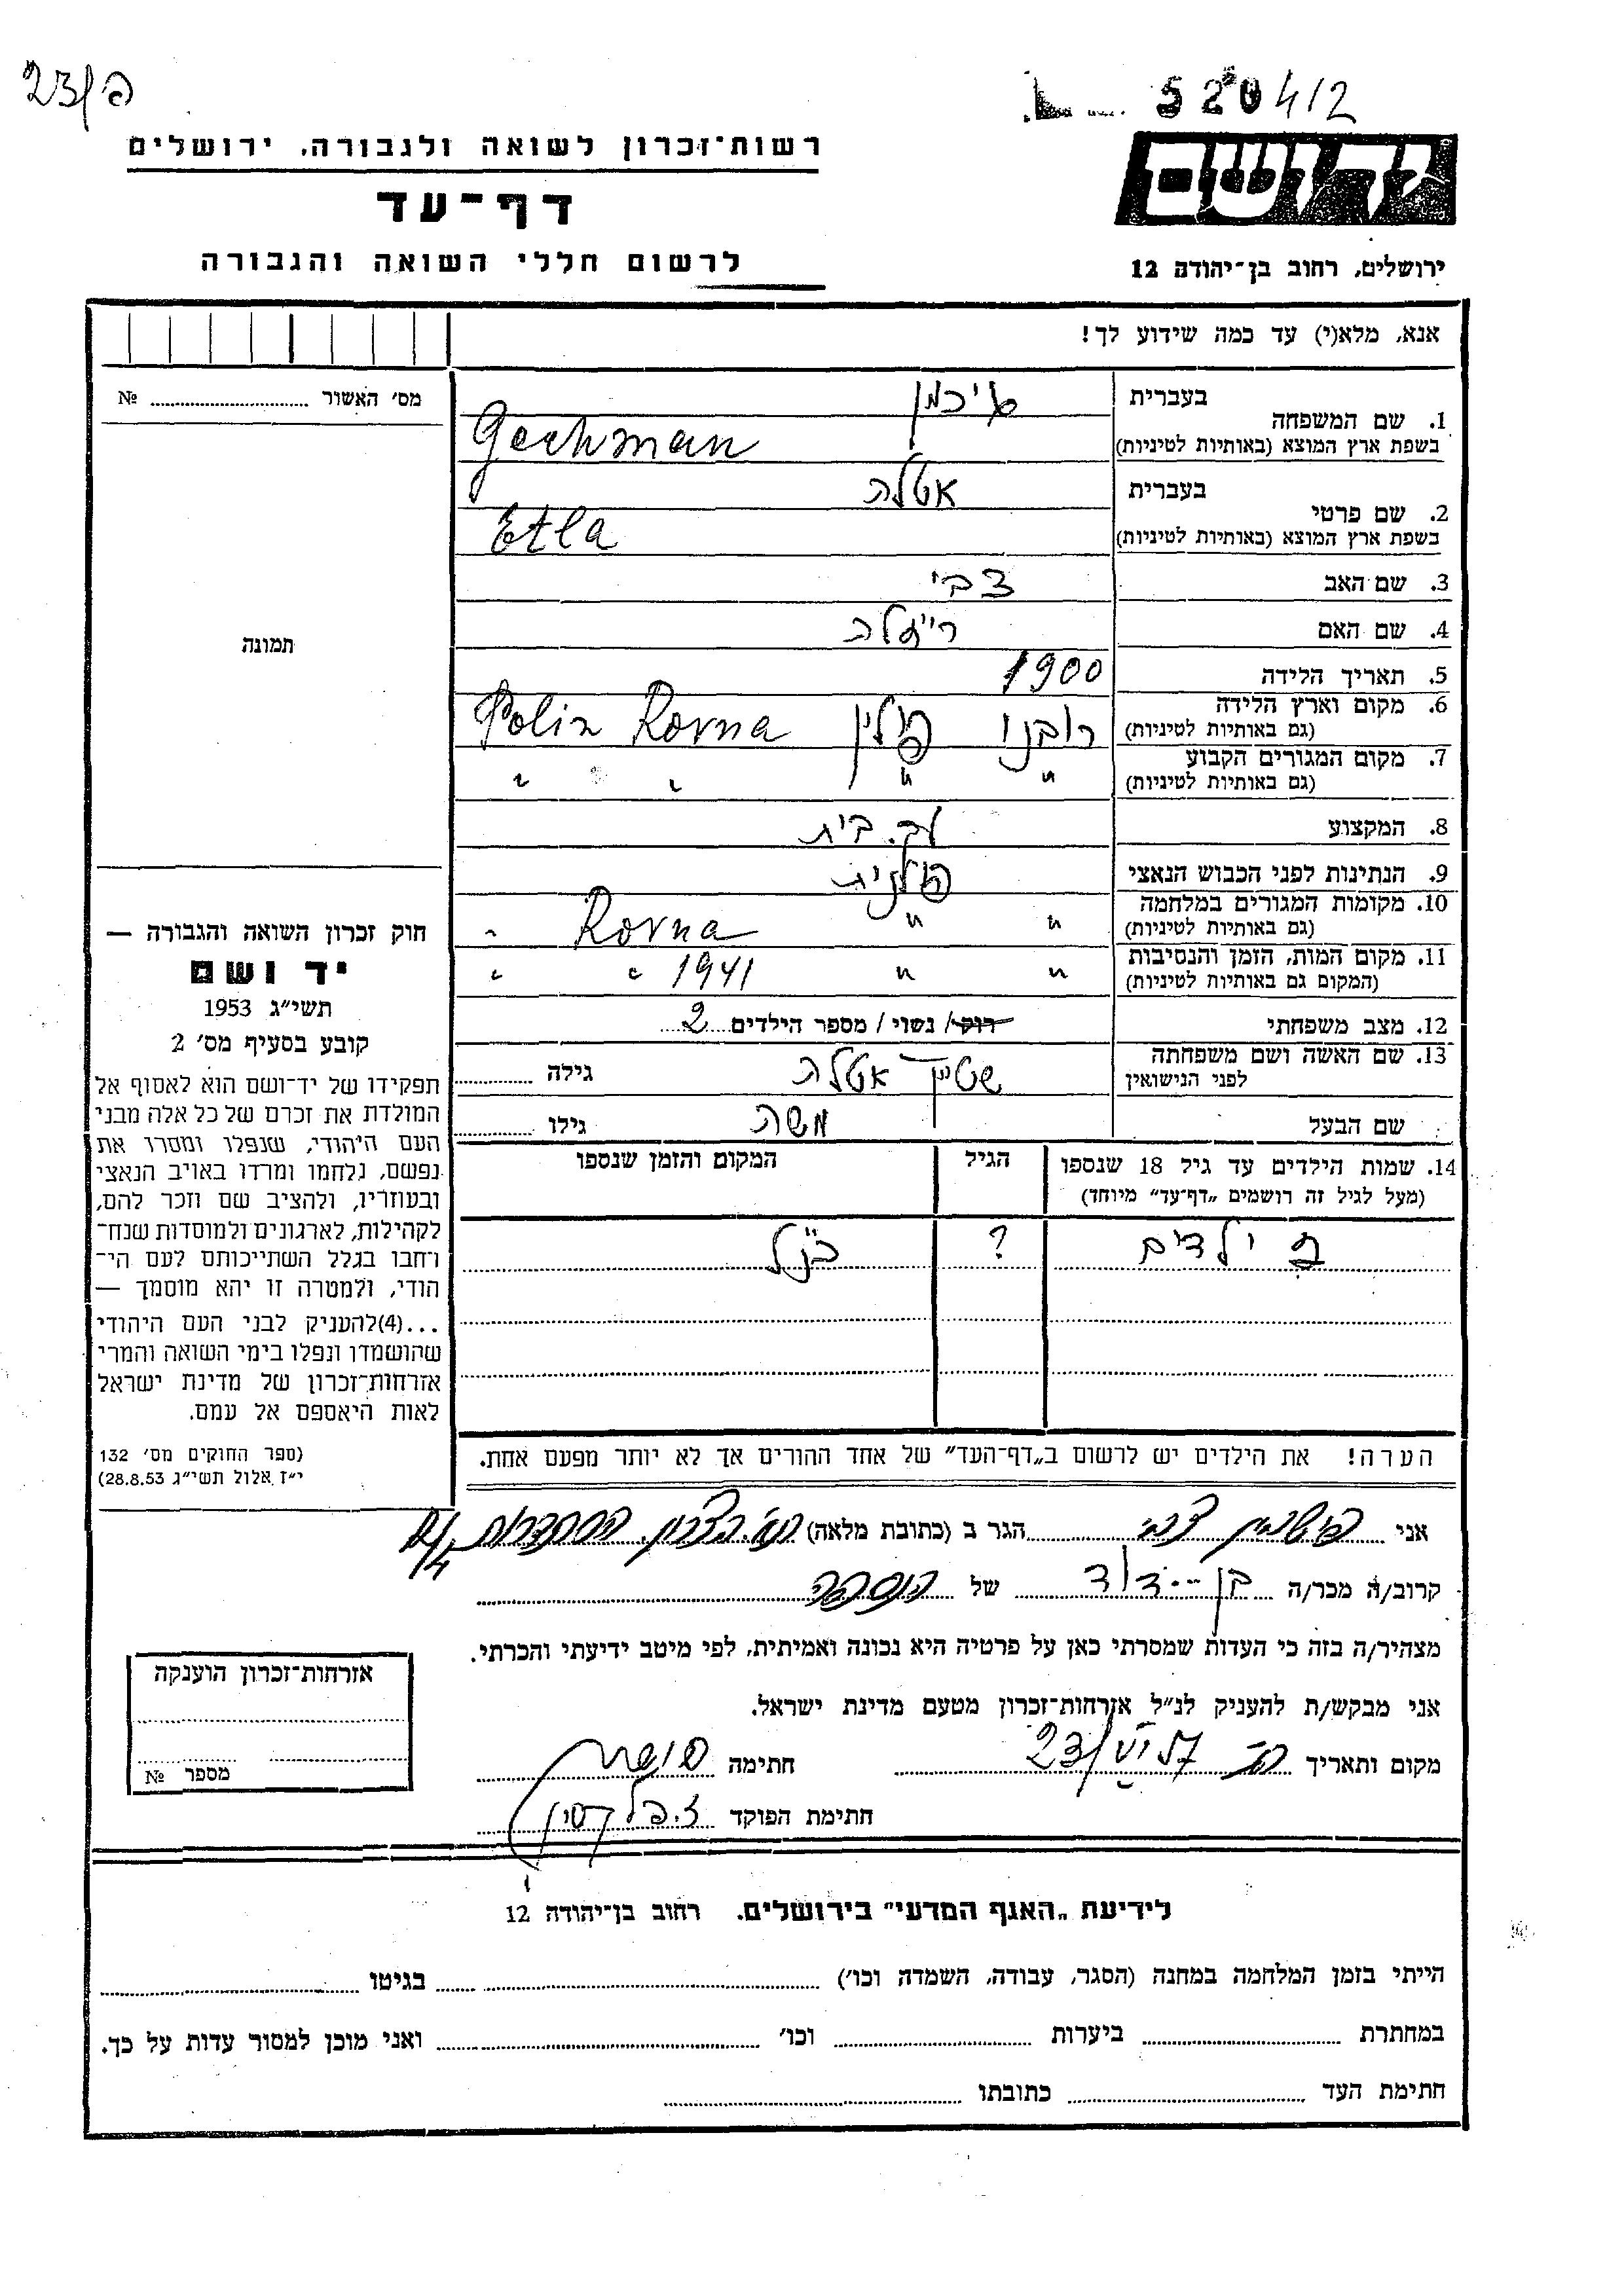 23/פ
520412
רשות־זכרון לשואה ולגבורה, ירושלים
יד ושם
דף־עד
לרשום חללי השואה והגבורה
ירושלים, רחוב בן־יהודה 12
אנא, מלא(י) עד כמה שידוע לך!
מס׳ האשור № 
בעברית
1. שם המשפחה
בשפת ארץ המוצא (באותיות לטיניות) Gechman
בעברית אטלה
2. שם פרטי
בשפת ארץ המוצא (באותיות לטיניות) Etla
3. שם האב צבי
4. שם האם
תמונה
5. תאריך הלידה 1900
6. מקום וארץ הלידה
(גם באותיות לטיניות) רובנו פולין Rovna Polin
7. מקום המגורים הקבוע
(גם באותיות לטיניות) " " " "
8. המקצוע עק. בית
9. הנתינות לפני הכבוש הנאצי פולנית
10. מקומות המגורים במלחמה
(גם באותיות לטיניות) " " Rovna "
11. מקום המות, הזמן והנסיבות
(המקום גם באותיות לטיניות) " " 1941 " "
12. מצב משפחתי רווק/ נשוי/ מספר הילדים 2
13. שם האשה ושם משפחתה
לפני הנישואין שטיין אטלה גילה
שם הבעל משה גילו
14. שמות הילדים עד גיל 18 שנספו הגיל המקום והזמן שנספו
(מעל לגיל זה רושמים „דף־עד" מיוחד)
ילדים ? כנ"ל
הערה! את הילדים יש לרשום ב„דף־העד" של אחד ההורים אך לא יותר מפעם אחת.
חוק זכרון השואה והגבורה —
יד ושם
תשי״ג 1953
קובע בסעיף מס׳ 2
תפקידו של יד־ושם הוא לאסוף אל
המולדת את זכרם של כל אלה מבני
העם היהודי, שנפלו ומסרו את
נפשם, נלחמו ומרדו באויב הנאצי
ובעוזריו, ולהציב שם וזכר להם,
לקהילות, לארגונים ולמוסדות שנח־
רחבו בגלל השתייכותם לעם הי־
הודי, ולמטרה זו יהא מוסמך —
...(4) להעניק לבני העם היהודי
שהושמדו ונפלו בימי השואה והמרי
אזרחות־זכרון של מדינת ישראל
לאות היאספם אל עמם.
(ספר החוקים מס׳ 132
י״ז אלול תשי״ג 28.8.53)
אני צבי הגר ב (כתובת מלאה)
קרוב/ה מכר/ה בן-דוד של הנספה
מצהיר/ה בזה כי העדות שמסרתי כאן על פרטיה היא נכונה ואמיתית, לפי מיטב ידיעתי והכרתי.
אני מבקש/ת להעניק לנ״ל אזרחות־זכרון מטעם מדינת ישראל.
מקום ותאריך חתימה
חתימת הפוקד
אזרחות־זכרון הוענקה
מספר №
לידיעת „האגף המדעי" בירושלים, רחוב בן־יהודה 12
הייתי בזמן המלחמה במחנה (הסגר, עבודה, השמדה וכו׳) בגיטו
במחתרת ביערות וכו׳ ואני מוכן למסור עדות על כך.
חתימת העד כתובתו